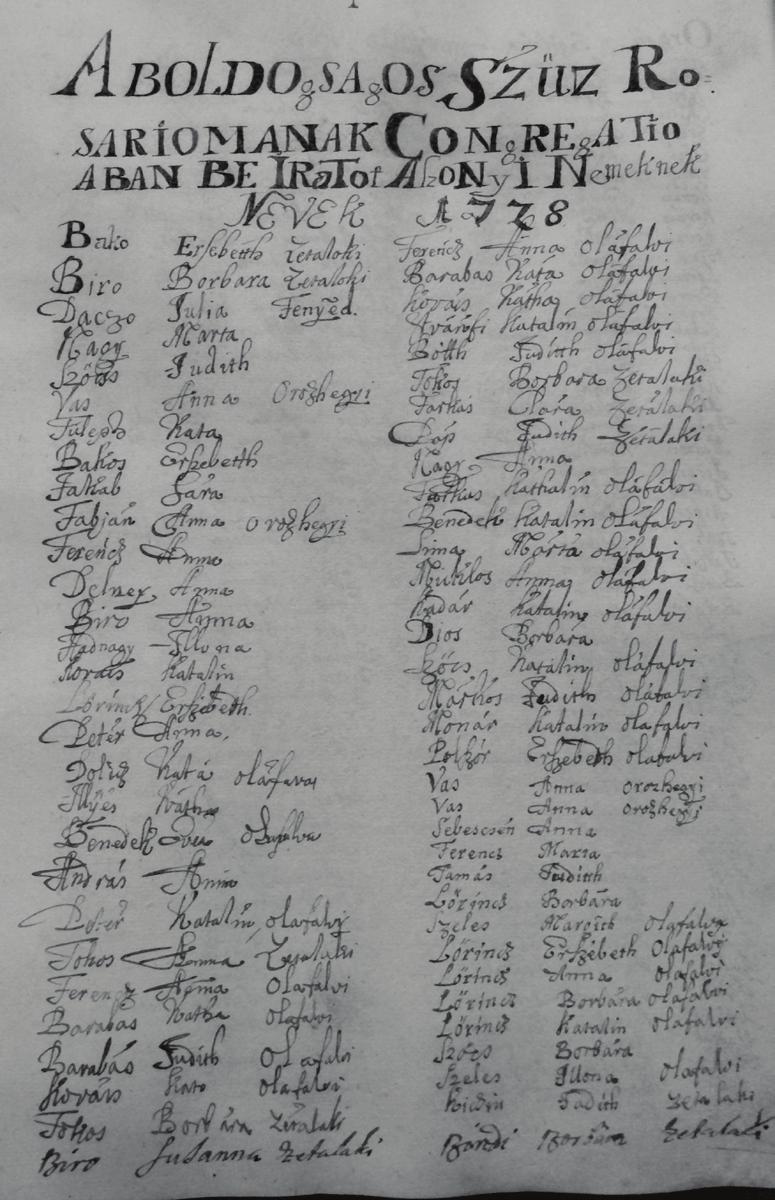 A BOLDOgSAgOS SZŰZ Ro=
SARIOMANAK CONgREgATio
ABAN BE IRaTot AszoNyI Nemeknek
NEVEK Ao 1728
Bako Ersebetth Zetaloki
Biro Borbara Zetaloki
Daczo Julia Fenyed.
Nagy Marta
Szőts Judith
Vas Anna Oroszhegyi
Fülep Kata
Bakos Erszebetth
Jakab Sára
Fabján Anna oroszhegyi
Ferencz Anna
Delney Anna
Biro Anna
Hadnagy Illona
Kovats Katalin
Lőrincz Erszebeth.
Peter Anna.
Kata oláfava
Illyes Kátha
Benedek Eva olafalva
András Anna
Peter Katalin olafalvi
Tokos Anna Zetalaki
Ferencz Anna Olafalvi
Barabas Katha olafalvi
Barabás Judith Olafalvi
Kováts Kato olafalvi
Tokos Borbára Zetalaki
Biro Susanna Zetalaki
Ferencz Anna oláfalvi
Barabas Katá oláfalvi
Kováts Kátha oláfalvi
Katalin oláfalvi
Botth Juditth oláfalvi
Tokos Borbara Zetalaki
Farkas Clára Zetálaki
Páp Judith Zetalaki
Nagy Anna
Farkas Kathalin oláfálvi
Benedek Katalin oláfalvi
Sima Mártá oláfalvi
Mikklos Anna oláfalvi
Kadár Katalin oláfalvi
Dios Borbará
Szőcs Katalin oláfalvi
Márkos Judith olafalvi
Monár Katalin olafalvi
Erszebeth olafalvi
Vas Anna oroszhegyi
Vas Anna oroszhegyi
Sebescsén Anna
Ferencz Maria
Tamás Juditth
Lőrincz Borbára
Szeles Margith olafalvi
Lőrincz Erszébeth Olafalvi
Lőrincz Anna olafalvi
Lőrincz Borbára olafalvi
Lőrincz Katalin olafalvi
Szőcs Borbára
Szeles Illona olafalvi
Judith Zetalaki
Borbára Zetalaki